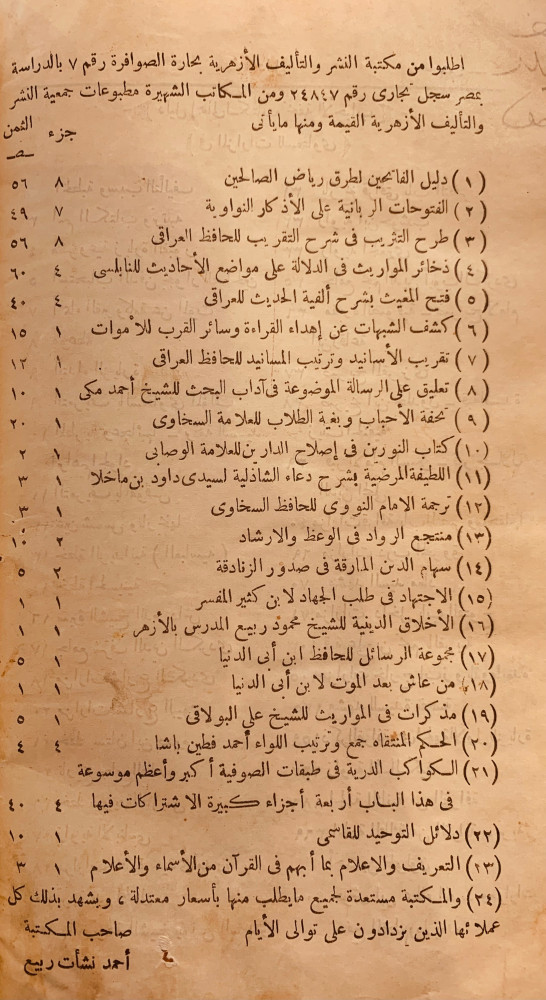 اطلبوا من مكتبة النشر والتأليف الأزهرية بحارة الصوافرة رقم ٧ بالدراسة
بمصر سجل تجارى رقم ٢٤٨٤٧ ومن المكاتب الشهيرة مطبوعات جمعية النشر
والتأليف الأزهرية القيمة ومنها مايأتى جزء الثمن
(١) دليل الفاتحين لطرق رياض الصالحين ٨ ٥٦
(٢) الفتوحات الربانية على الأذكار النواوية ٧ ٤٩
(٣) طرح التثريب فى شرح التقريب للحافظ العراقى ٨ ٥٦
(٤) ذخائر المواريث فى الدلالة على مواضع الأحاديث للنابلسى ٤ ٦٠
(٥) فتح المغيث بشرح ألفية الحديث للعراقى ٤ ٤٠
(٦) كشف الشبهات عن إهداء القراءة وسائر القرب للأموات ١ ١٥
(٧) تقريب الأسانيد وترتيب المسانيد للحافظ العراقى ١ ١٢
(٨) تعليق على الرسالة الموضوعة فى آداب البحث للشيخ أحمد مكى ١ ١٠
(٩) تحفة الأحباب وبغية الطلاب للعلامة السخاوى ١ ٢٠
(١٠) كتاب النورين فى إصلاح الدارين للعلامة الوصابى ١ ٢
(١١) اللطيفة المرضية بشرح دعاء الشاذلية لسيدى داود بن ماخلا ١ ٣
(١٢) ترجمة الامام النووى للحافظ السخاوى ١ ٣
(١٣) منتجع الرواد فى الوعظ والارشاد ٢ ١٠
(١٤) سهام الدين المارقة فى صدور الزنادقة ٢ ٥
(١٥) الاجتهاد فى طلب الجهاد لابن كثير المفسر ١ ١
(١٦) الأخلاق الدينية للشيخ محمود ربيع المدرس بالأزهر ١ ١
(١٧) مجموعة الرسائل للحافظ ابن أبى الدنيا ١ ٥
(١٨) من عاش بعد الموت لابن أبى الدنيا ١ ١
(١٩) مذكرات فى المواريث للشيخ على البولاقى ١ ٥
(٢٠) الحكم المنتقاه جمع وترتيب اللواء أحمد فطين باشا ٤ ٤
(٢١) الكواكب الدرية فى طبقات الصوفية أكبر وأعظم موسوعة
فى هذا الباب أربعة أجزاء كبيرة الاشتراكات فيها ٤ ٤٠
(٢٢) دلائل التوحيد للقاسمى ١ ١٠
(٢٣) التعريف والاعلام بما أبهم فى القرآن من الأسماء والأعلام ١ ٣
(٢٤) والمكتبة مستعدة لجميع مايطلب منها بأسعار معتدلة ، ويشهد بذلك كل
عملائها الذين يزدادون على توالى الأيام صاحب المكتبة
أحمد نشأت ربيع